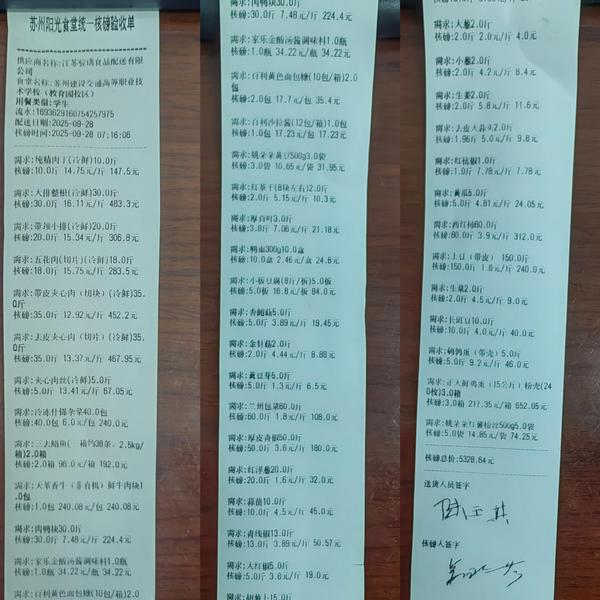 苏州阳光食堂统一核磅验收单
供应商名称:江苏骏瑀食品配送有限
公司
食堂名称:苏州建设交通高等职业技
术学校(教育园校区)
用餐类组:学生
流水:1693629160754257975
配送日期:2025-09-28
核磅时间:2025-09-28 07:16:06
需求:纯精肉丁(冷鲜)10.0斤
核磅:10.0斤 14.75元/斤 147.5元
需求:大排整根(冷鲜)30.0斤
核磅:30.0斤 16.11元/斤 483.3元
需求:带颈小排(冷鲜)20.0斤
核磅:20.0斤 15.34元/斤 306.8元
需求:五花肉(切片)(冷鲜)18.0斤
核磅:18.0斤 15.75元/斤 283.5元
需求:带皮夹心肉(切块)(冷鲜)35.
0斤
核磅:35.0斤 12.92元/斤 452.2元
需求:去皮夹心肉(切片)(冷鲜)35.
0斤
核磅:35.0斤 13.37元/斤 467.95元
需求:夹心肉丝(冷鲜)5.0斤
核磅:5.0斤 13.41元/斤 67.05元
需求:冷冻什锦杂菜40.0包
核磅:40.0包 6.0元/包 240.0元
需求:三去鲳鱼(一箱约38条，2.5kg/
箱)2.0箱
核磅:2.0箱 96.0元/箱 192.0元
需求:大荤香牛(非有机)鲜牛肉块1
.0包
核磅:1.0包 240.08元/包 240.08元
需求:肉鸭块30.0斤
核磅:30.0斤 7.48元/斤 224.4元
需求:家乐金酸汤酱调味料1.0瓶
核磅:1.0瓶 34.22元/瓶 34.22元
需求:百利黄色面包糠(10包/箱)2.0
需求:肉鸭块30.0斤
核磅:30.0斤 7.48元/斤 224.4元
需求:家乐金酸汤酱调味料1.0瓶
核磅:1.0瓶 34.22元/瓶 34.22元
需求:百利黄色面包糠(10包/箱)2.0
包
核磅:2.0包 17.7元/包 35.4元
需求:百利沙拉酱(12包/箱)1.0包
核磅:1.0包 17.23元/包 17.23元
需求:姚朵朵黄豆500g3.0袋
核磅:3.0袋 10.65元/袋 31.95元
需求:红茶干(8块左右)2.0斤
核磅:2.0斤 5.15元/斤 10.3元
需求:厚百叶3.0斤
核磅:3.0斤 7.06元/斤 21.18元
需求:鸭血300g10.0盒
核磅:10.0盒 2.46元/盒 24.6元
需求:小板豆腐(8斤/板)5.0板
核磅:5.0板 16.8元/板 84.0元
需求:香菇5.0斤
核磅:5.0斤 3.89元/斤 19.45元
需求:金针菇2.0斤
核磅:2.0斤 4.44元/斤 8.88元
需求:黄豆芽5.0斤
核磅:5.0斤 1.3元/斤 6.5元
需求:兰州包菜60.0斤
核磅:60.0斤 1.8元/斤 108.0元
需求:厚皮青椒50.0斤
核磅:50.0斤 3.6元/斤 180.0元
需求:红洋葱20.0斤
核磅:20.0斤 1.6元/斤 32.0元
需求:蒜苗10.0斤
核磅:10.0斤 4.5元/斤 45.0元
需求:青线椒13.0斤
核磅:13.0斤 3.89元/斤 50.57元
需求:大红椒5.0斤
核磅:5.0斤 3.8元/斤 19.0元
需求:胡萝卜15.0斤
需求:大葱2.0斤
核磅:2.0斤 2.0元/斤 4.0元
需求:小葱2.0斤
核磅:2.0斤 4.2元/斤 8.4元
需求:生姜2.0斤
核磅:2.0斤 5.8元/斤 11.6元
需求:去皮大蒜2.0斤
核磅:1.96斤 5.0元/斤 9.8元
需求:红杭椒1.0斤
核磅:1.0斤 7.78元/斤 7.78元
需求:黄瓜5.0斤
核磅:5.0斤 4.81元/斤 24.05元
需求:西红柿80.0斤
核磅:80.0斤 3.9元/斤 312.0元
需求:土豆(带皮) 150.0斤
核磅:150.0斤 1.6元/斤 240.0元
需求:生菜2.0斤
核磅:2.0斤 4.5元/斤 9.0元
需求:长豇豆10.0斤
核磅:10.0斤 4.0元/斤 40.0元
需求:鹌鹑蛋(带壳)5.0斤
核磅:5.0斤 9.2元/斤 46.0元
需求:正大鲜鸡蛋(15公斤)粉壳(24
0枚)3.0箱
核磅:3.0箱 217.35元/箱 652.05元
需求:姚朵朵红薯粉丝500g5.0袋
核磅:5.0袋 14.85元/袋 74.25元
核磅总价:5328.64元
送货人员签字
核磅人签字